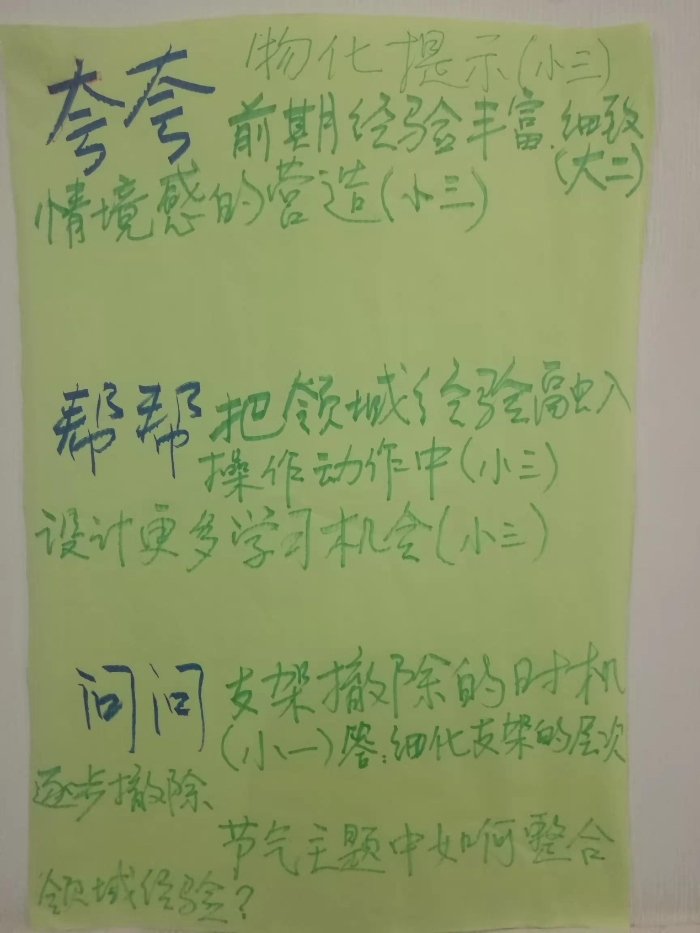 夸夸 物化提示(小三)
前期经验丰富.细致
(大二)
情境感的营造(小三)
帮帮 把领域经验融入
操作动作中(小三)
设计更多学习机会(小三)
问问 支架撤除的时机
(小一)答:细化支架的层次
逐步撤除、
节气主题中如何整合
领域经验?